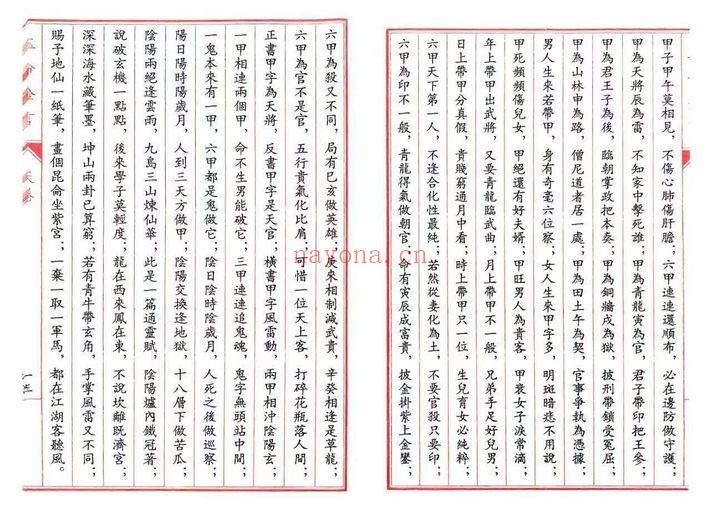 甲子甲午莫相見，不傷心肺傷肝膽；六甲連連還順布，必在邊防做守護；
甲為天將辰為雷，不知家中擊死誰；甲為青龍寅為官，君子帶印把王參；
甲為君王子為後，臨朝掌政把本奏；甲為銅牆戍為獄，披刑帶鎖受冤屈；
甲為山林申為路，僧尼道者居一處；甲為田土午為契，官事爭執為憑據；
男人生來若帶甲，身有奇毫六位察；女人生來甲字多，明斑暗痣不用說；
甲死頻頻傷兒女，甲絕還有好夫婿；甲旺男人為貴客，甲衰女子淚常滴；
年上帶甲出武將，又要青龍臨武曲；月上帶甲不一般，兄弟手足好兒男；
日上帶甲分真假，貴賤窮通月中看；時上帶甲只一位，生兒育女必純粹；
六甲天下第一人，不逢合化性最純；若然從妻化為土，不要官殺只要印；
六甲為印不一般，青龍得氣做朝官；命有寅辰成富貴，披金掛紫上金鑾；
六甲為殺又不同，局有巳亥做英雄；庚來相制減武貴，辛癸相逢是草龍；
六甲為官不是官，五行貴氣化比肩；可惜一位天上客，打碎花瓶落人間；
正書甲字為天將，反書甲字是天官；橫書甲字風雷動，兩甲相沖陰陽玄；
一甲相連兩個甲，命不生男能破它；三甲連連追鬼魂，鬼字無頭站中間；
一鬼本來有一甲，六甲都是鬼做它；陰日陰時陰歲月，人死之後做巡察；
陽日陽時陽歲月，人到三天方做甲；陰陽交換逢地獄，十八層下做苦瓜；
陰陽兩絕逢雲雨，九島三山煉仙華；此是一篇通靈賦，陰陽爐內鐵冠著；
說破玄機一點點，後來學子莫輕度；龍在西來鳳在東，不說坎離既濟宮；
深深海水藏筆墨，坤山兩卦已算窮；若有青牛帶玄角，手掌風雷又不同；
賜予地仙一紙筆，畫個昆侖坐紫宮；一棄一取一軍馬，都在江湖客聽風。
天卷
一三
nayona.cn